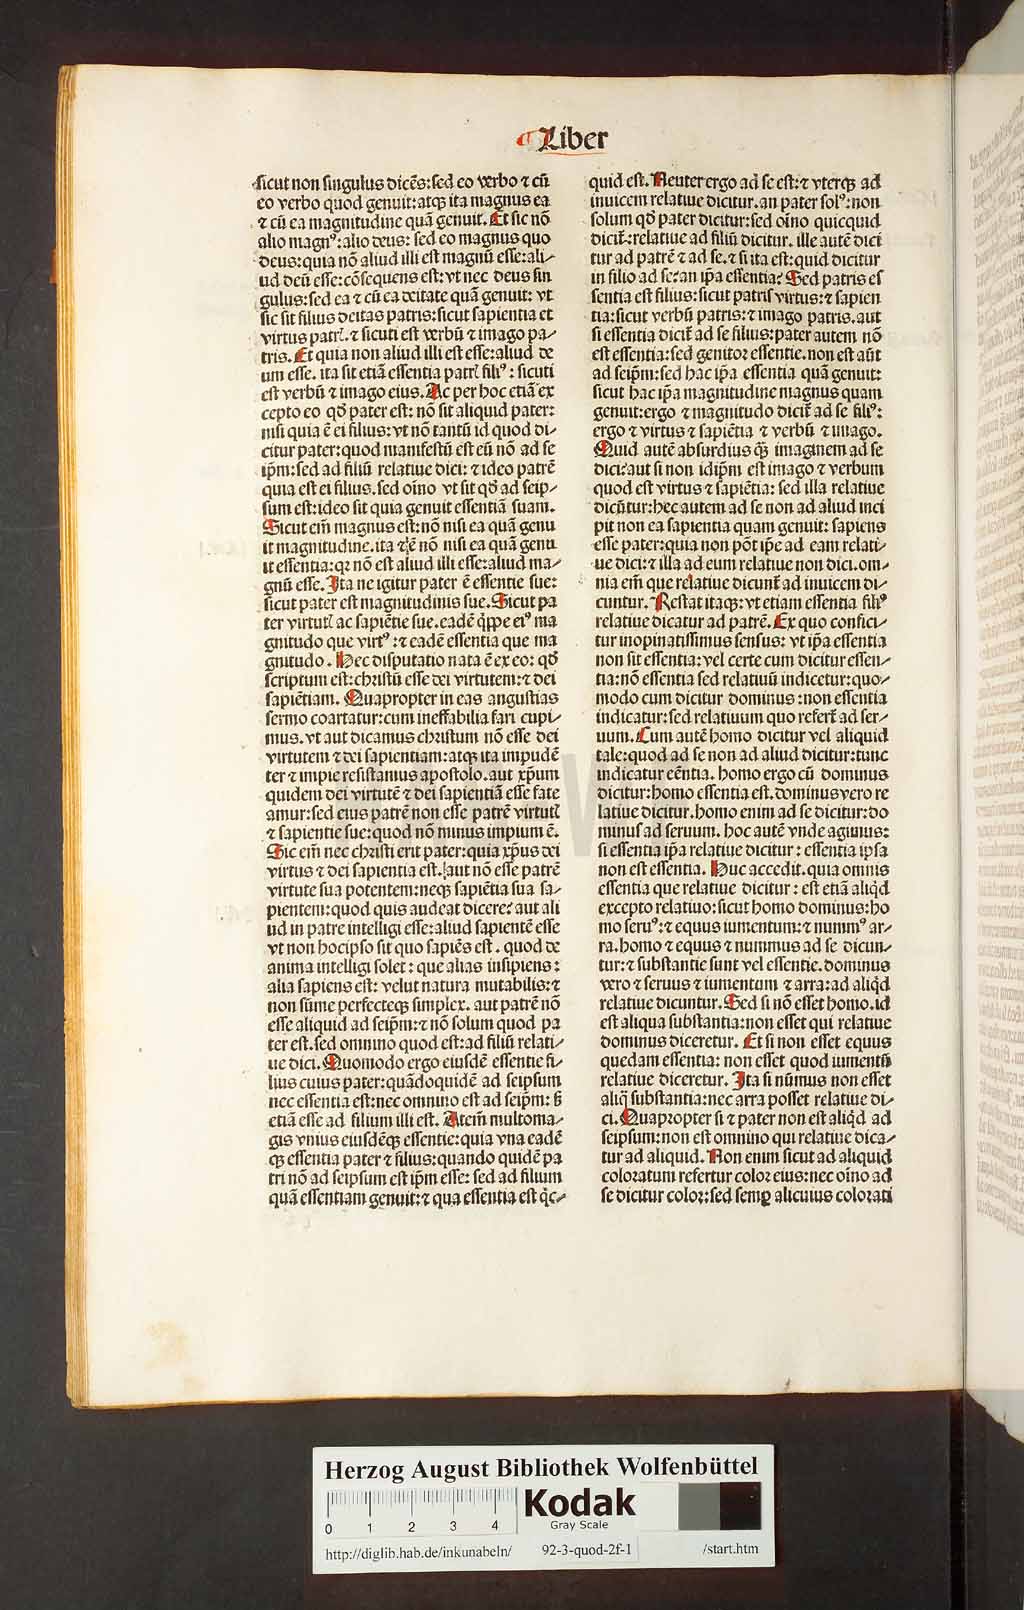 Liber
sicut non singulus dicēs: sed eo verbo ⁊ cū
eo verbo quod genuit: atqꝫ ita magnus ea
⁊ cū ea magnitudine quā genuit. Et sic nō
alio magnꝰ: alio deus: sed eo magnus quo
deus: quia nō aliud illi est magnū esse: ali⸗
ud deū esse: cōsequens est: vt nec deus sin
gulus: sed ea ⁊ cū ea deitate quā genuit: vt
sic sit filius deitas patris: sicut sapientia et
virtus patrꝭ. ⁊ sicuti est verbū ⁊ imago pa⸗
tris. Et quia non aliud illi est esse: aliud de
um esse. ita sit etiā essentia patrꝭ filiꝰ: sicuti
est verbū ⁊ imago eius. Ac per hoc etiā ex
cepto eo qđ pater est: nō sit aliquid pater:
nisi quia ē ei filius: vt nō tantū id quod di⸗
citur pater: quod manifestū est eū nō ad se
ip̄m: sed ad filiū relatiue dici: ⁊ ideo patrē
quia est ei filius. sed oīno vt sit qđ ad seip⸗
sum est: ideo sit quia genuit essentiā suam.
Sicut em̄ magnus est: nō nisi ea quā genu
it magnitudine. ita ⁊ē nō nisi ea quā genu
it essentia: qꝛ nō est aliud illi esse: aliud ma⸗
gnū esse. Ita ne igitur pater ē essentie sue:
sicut pater est magnitudinis sue. Sicut pa
ter virtutꝭ ac sapiētie sue. eadē q̄ppe eiꝰ ma
gnitudo que virtꝰ: ⁊ eadē essentia que ma
gnitudo. Hec disputatio nata ē ex eo: qđ
scriptum est: christū esse dei virtutem: ⁊ dei
sapiētiam. Quapropter in eas angustias
sermo coartatur: cum ineffabilia fari cupi⸗
mus. vt aut dicamus christum nō esse dei
virtutem ⁊ dei sapientiam: atqꝫ ita impudē
ter ⁊ impie resistamus apostolo. aut xp̄um
quidem dei virtutē ⁊ dei sapientiā esse fate
amur: sed eius patrē non esse patrē virtutꝭ
⁊ sapientie sue: quod nō minus impium ē.
Sic em̄ nec christi erit pater: quia xp̄us dei
virtus ⁊ dei sapientia est. aut nō esse patrē
virtute sua potentem: neqꝫ sapiētia sua sa⸗
pientem: quod quis audeat dicere? aut ali
ud in patre intelligi esse: aliud sapientē esse
vt non hocipso sit quo sapiēs est. quod de
anima intelligi solet: que alias insipiens:
alia sapiens est: velut natura mutabilis: ⁊
non sūme perfecteqꝫ simplex. aut patrē nō
esse aliquid ad seip̄m: ⁊ nō solum quod pa
ter est. sed omnino quod est: ad filiū relati⸗
ue dici. Quomodo ergo eiusdē essentie fi⸗
lius cuius pater: quādoquidē ad seipsum
nec essentia est: nec omnino est ad seip̄m: sꝫ
etiā esse ad filium illi est. Atem̄ multoma⸗
gis vnius eiusdēqꝫ essentie: quia vna eadē
qꝫ essentia pater ⁊ filius: quando quidē pa
tri nō ad seipsum est ip̄m esse: sed ad filium
quā essentiam genuit: ⁊ qua essentia est qͥc⸗
quid est. Neuter ergo ad se est: ⁊ vterqꝫ ad
inuicem relatiue dicitur. an pater solꝰ: non
solum qđ pater dicitur: sed oīno quicquid
dicit̄: relatiue ad filiū dicitur. ille autē dici
tur ad patrē ⁊ ad se. ⁊ si ita est: quid dicitur
in filio ad se? an ip̄a essentia? Sed patris es
sentia est filius: sicut patris virtus: ⁊ sapien
tia: sicut verbū patris: ⁊ imago patris. aut
si essentia dicit̄ ad se filius: pater autem nō
est essentia: sed genitor essentie. non est aūt
ad seip̄m: sed hac ip̄a essentia quā genuit:
sicut hac ip̄a magnitudine magnus quam
genuit: ergo ⁊ magnitudo dicit̄ ad se filiꝰ:
ergo ⁊ virtus ⁊ sapiētia ⁊ verbū ⁊ imago.
Quid autē absurdius qꝫ̄ imaginem ad se
dici? aut si non idip̄m est imago ⁊ verbum
quod est virtus ⁊ sapiētia: sed illa relatiue
dicūtur: hec autem ad se non ad aliud inci
pit non ea sapientia quam genuit: sapiens
esse pater: quia non pōt ip̄e ad eam relati⸗
ue dici: ⁊ illa ad eum relatiue non dici. om⸗
nia em̄ que relatiue dicunt̄ ad inuicem di⸗
cuntur. Restat itaqꝫ: vt etiam essentia filiꝰ
relatiue dicatur ad patrē. Ex quo confici⸗
tur inopinatissimus sensus: vt ip̄a essentia
non sit essentia: vel certe cum dicitur essen⸗
tia: nō essentia sed relatiuū indicetur: quo⸗
modo cum dicitur dominus: non essentia
indicatur: sed relatiuum quo refert̄ ad ser⸗
uum. Cum autē homo dicitur vel aliquid
tale: quod ad se non ad aliud dicitur: tunc
indicatur eēntia. homo ergo cū dominus
dicitur: homo essentia est. dominus vero re
latiue dicitur. homo enim ad se dicitur: do
minus ad seruum. hoc autē vnde agimus:
si essentia ip̄a relatiue dicitur: essentia ipsa
non est essentia. Huc accedit. quia omnis
essentia que relatiue dicitur: est etiā aliqͥd
excepto relatiuo: sicut homo dominus: ho
mo seruꝰ: ⁊ equus iumentum: ⁊ nummꝰ ar⸗
ra. homo ⁊ equus ⁊ nummus ad se dicun⸗
tur: ⁊ substantie sunt vel essentie. dominus
vero ⁊ seruus ⁊ iumentum ⁊ arra: ad aliqͥd
relatiue dicuntur. Sed si nō esset homo. id
est aliqua substantia: non esset qui relatiue
dominus diceretur. Et si non esset equus
quedam essentia: non esset quod iumentū
relatiue diceretur. Ita si nūmus non esset
aliq̄ substantia: nec arra posset relatiue di⸗
ci. Quapropter si ⁊ pater non est aliqͥd ad
seipsum: non est omnino qui relatiue dica⸗
tur ad aliquid. Non enim sicut ad aliquid
coloratum refertur color eius: nec oīno ad
se dicitur color: sed semꝑ alicuius colorati
HAB-W
Herzog August Bibliothek Wolfenbüttel
0 1 2 3 4
Kodak
Gray Scale
http://diglib.hab.de/inkunabeln/ 92-3-quod-2f-1 /start.htm